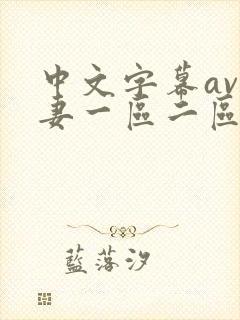 中文字幕av
妻一區二區
藍落汐